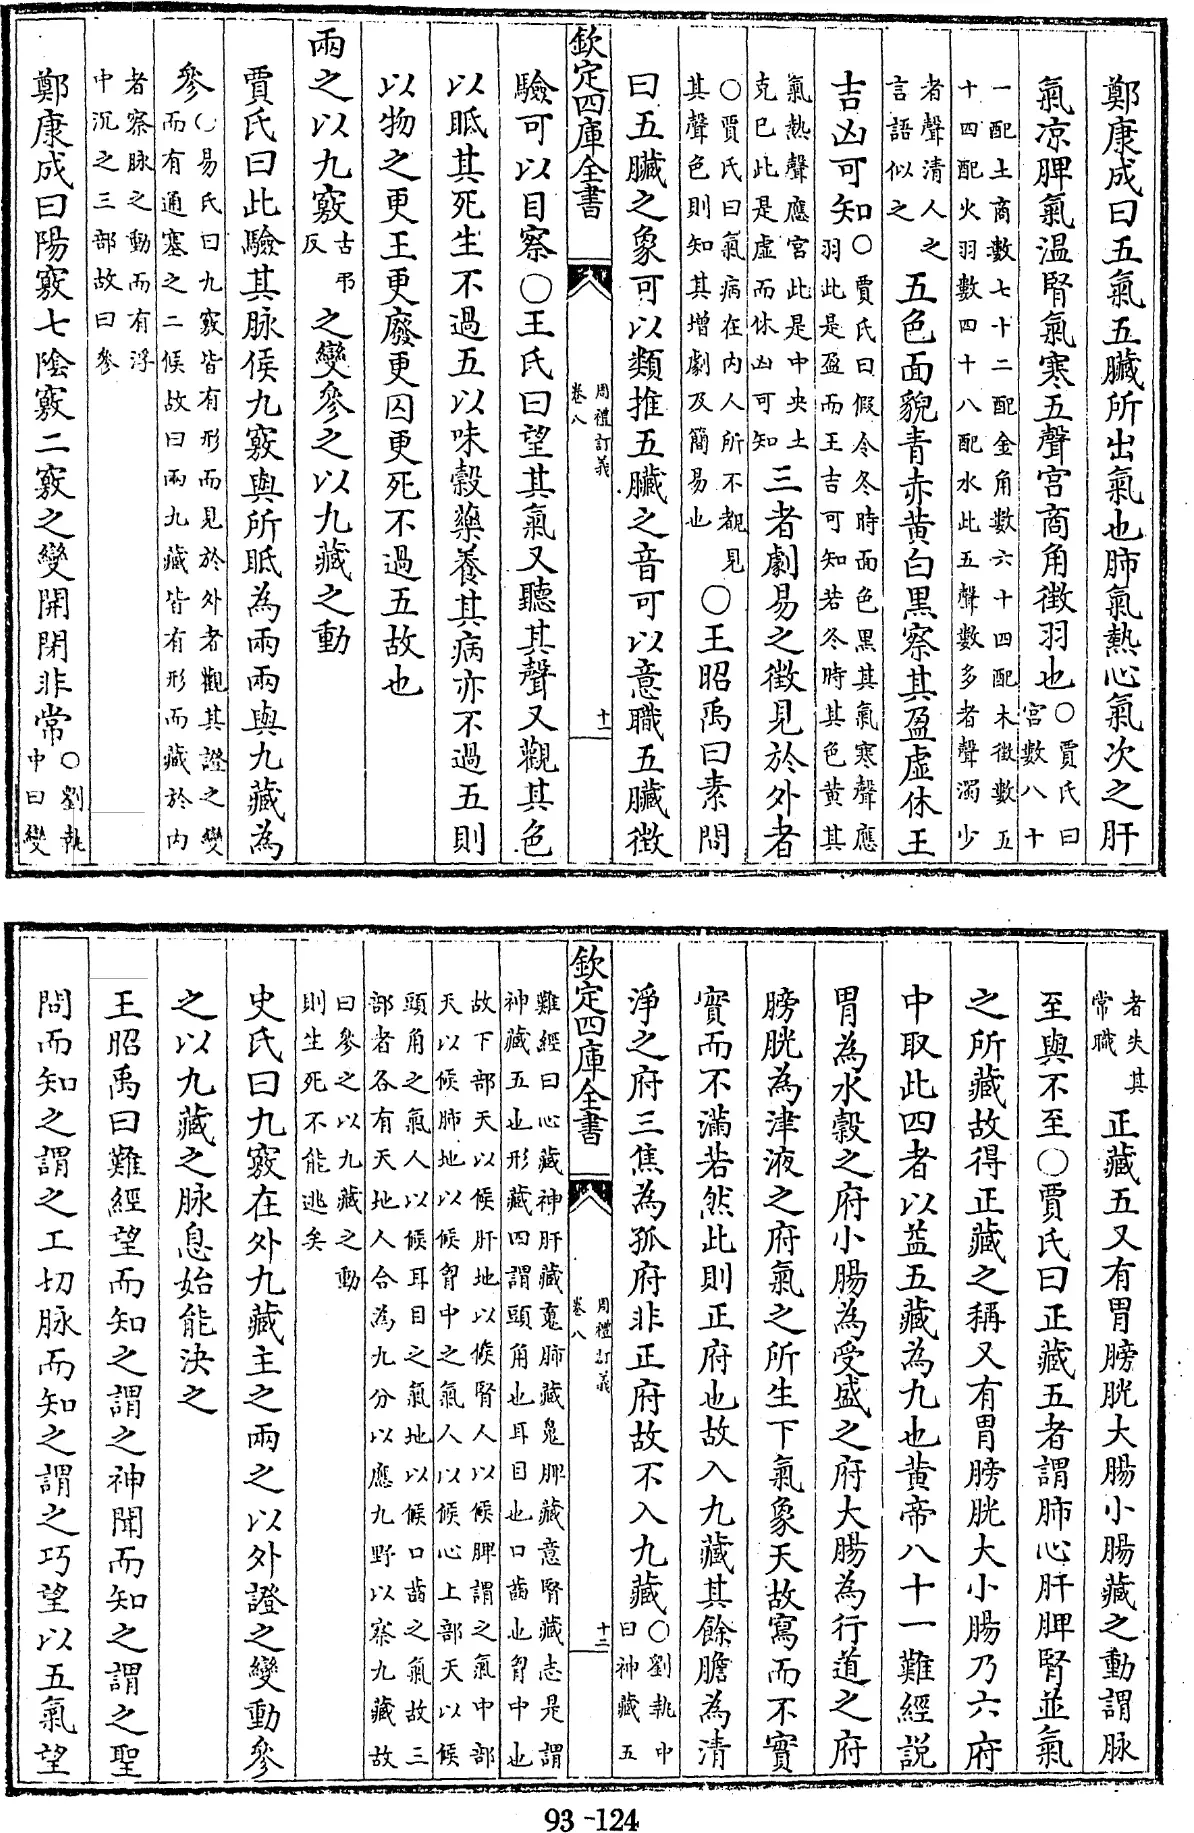 鄭康成曰五氣五臟所出氣也肺氣熱心氣次之肝
氣凉脾氣温腎氣寒五聲宫商角徴羽也○賈氏曰宫數八十
一配土商數七十二配金角數六十四配木徴數五
十四配火羽數四十八配水此五聲數多者聲濁少
者聲清人之言語似之五色面貌青赤黄白黒察其盈虚休王
吉凶可知○賈氏曰假令冬時面色黒其氣寒聲應羽此是盈而王吉可知若冬時其色黄其
氣熱聲應宫此是中央土克巳此是虚而休凶可知三者劇易之徴見於外者
○賈氏曰氣病在内人所不覩見其聲色則知其增劇及簡易也○王昭禹曰素問
曰五臟之象可以類推五臟之音可以意職五臟徴
欽定四庫全書 周禮訂義 卷八 十一
驗可以目察○王氏曰望其氣又聽其聲又觀其色
以眡其死生不過五以味榖藥養其病亦不過五則
以物之更王更廢更囚更死不過五故也
兩之以九竅古弔反之變參之以九藏之動
賈氏曰此驗其脉侯九竅與所眡為兩兩與九藏為
參○易氏曰九竅皆有形而見於外者觀其證之變而有通塞之二候故曰兩九藏皆有形而藏於内
者察脉之動而有浮中沉之三部故曰參
鄭康成曰陽竅七陰竅二竅之變開閉非常○劉執中曰變
者失其常職正藏五又有胃膀胱大腸小腸藏之動謂脉
至與不至○賈氏曰正藏五者謂肺心肝脾腎並氣
之所藏故得正藏之稱又有胃膀胱大小腸乃六府
中取此四者以益五藏為九也黄帝八十一難經説
胃為水榖之府小腸為受盛之府大腸為行道之府
膀胱為津液之府氣之所生下氣象天故寫而不實
實而不滿若然此則正府也故入九藏其餘膽為清
淨之府三焦為孤府非正府故不入九藏○劉執中曰神藏五
欽定四庫全書 周禮訂義 卷八 十二
難經曰心藏神肝藏䰟肺藏鬼脾藏意腎藏志是謂
神藏五也形藏四謂頭角也耳目也口齒也胷中也
故下部天以候肝地以候腎人以候脾謂之氣中部
天以候肺地以候胷中之氣人以候心上部天以候
頭角之氣人以候耳目之氣地以候口齒之氣故三
部者各有天地人合為九分以應九野以察九藏故
曰參之以九藏之動
則生死不能逃矣
史氏曰九竅在外九藏主之兩之以外證之變動參
之以九藏之脉息始能決之
王昭禹曰難經望而知之謂之神聞而知之謂之聖
問而知之謂之工切脉而知之謂之巧望以五氣望
93-124